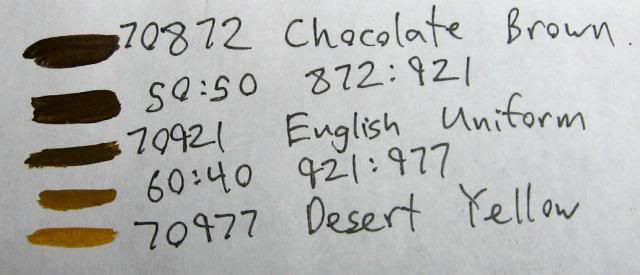 70872 Chocolate Brown.
50:50 872:921
70921 English Uniform
60:40 921:977
70977 Desert Yellow